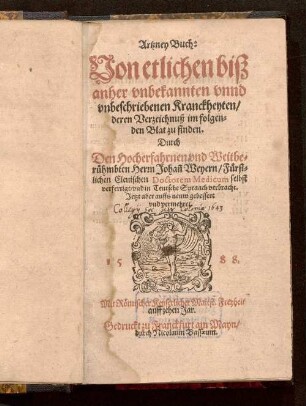 Artzney Buch:
Von etlichen biß
anher vnbekannten vnnd
vnbeschriebenen Kranckheyten/
deren Verzeichnuß im folgen-
den Blat zu finden.
Durch
Den Hocherfahrnen vnd Weitbe-
rühmbten Herrn Johañ Weyern/ Fürst-
lichen Clevischen Doctorem Medicum selbst
verfertigt vnd in Teutsche Spraach verbracht.
Jetzt aber auffs neuw gebessert
vnd vermehret.
1643
15 88.
Mit Römischer Keyserlicher Maiest. Freyheit
auff zehen Jar.
Gedruckt zu Franckfurt am Mayn/
durch Nicolaum Bassæum.